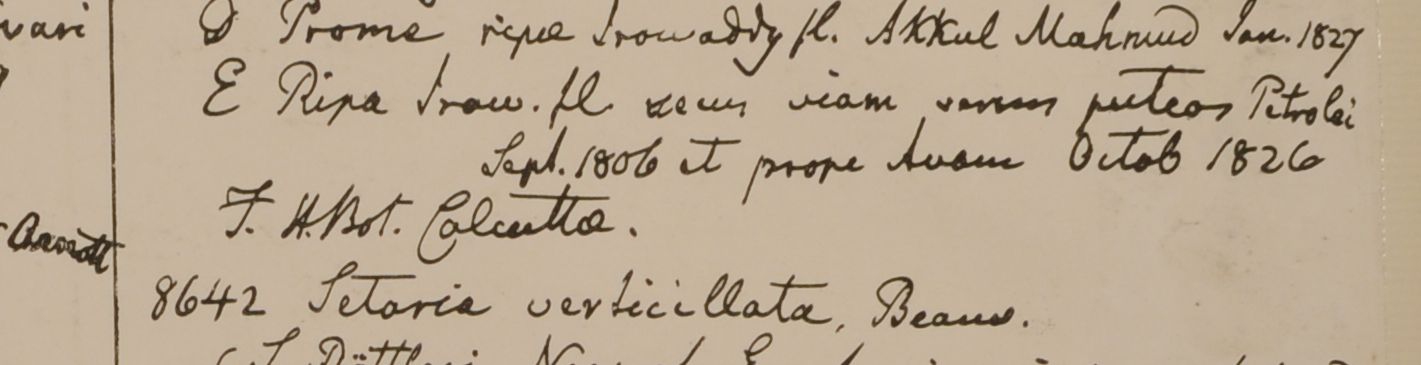 vari
D Prome ripæ Irowaddy fl. Akkul Mahmud Jan. 1827
E Ripa Irow. fl. secus viam versus puteos Petrolei
Sept. 1806 et prope Avam Octob 1826
F. H. Bot. Calcuttæ.
8642 Setaria verticillata, Beauv.